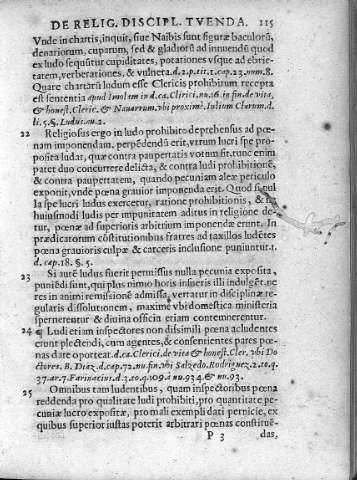 DE RELIG. DISCIPL. TVENDA. 115
Vnde in chartis, inquit, siue Naibis sunt figuræ baculorũ,
denariorum, cuparum, sed & gladiorũ ad innuendũ quod
ex ludo sequũtur cupiditates, potationes vsque ad ebrie-
tatem, verberationes, & vulnera. d. 2. p. tit. 1. cap. 23. num. 8.
Quare chartarũ ludum esse Clericis prohibitum recepta
est sententia apud Imol. em in d. ca. Clerici, nu. 16. in fin. de vita,
& honest. Cleric. & Nauarrum, vbi proxim. Iulium Clarum. d.
li. 5. §. Ludus. nu. 2.
22 Religiosus ergo in ludo prohibito deprehensus ad pœ-
nam imponendam, perpẽdendũ erit, vtrum lucri spe pro-
posita ludat, quæ contra paupertatis votum sit. tunc enim
patet duo concurrere delicta, & contra ludi prohibitionẽ,
& contra paupertatem, quando pecuniam aleæ periculo
exponit, vnde pœna grauior imponenda erit. Quod si nul
la spe lucri ludus exercetur, ratione prohibitionis, &
huiusmodi ludis per impunitatem aditus in religione de-
tur, pœnæ ad superioris arbitrium imponendæ erunt. In
prædicatorum cõstitutionibus fratres ad taxillos ludẽtes
pœna grauioris culpæ & carceris inclusione puniuntur. 1.
d. cap. 18. §. 5.
23 Si autẽ ludus fuerit permissus nulla pecunia exposita,
puniẽdi sunt, qui plus nimio horis insueris illi indulgẽt. ne
res in animi remissionẽ admissa, vertatur in disciplinæ re-
gularis dissolutionem, maximè vbi domestica ministeria
spernerentur & diuina officia etiam contemnerentur.
24 Ludi etiam inspectores non dissimili pœna acludentes
erunt plectendi, cum agentes, & consentientes pares pœ-
nas dare oporteat. d. ca. Clerici. de vita & honest. Cler. vbi Do
ctores. B. Diaz. d. cap. 72. nu. fin. vbi Salzedo. Rodriguez. 2. to. q.
37. ar. 7. Farinacius. d. 3. to. q. 109. à nu. 93 4. & nu. 93.
25 Omnibus tam ludentibus, quam inspectoribus pœna
reddenda pro qualitate ludi prohibiti, pro quantitate pe-
cuniæ lucro expositæ, pro mali exempli dati pernicie, ex
quibus superior iustas poterit arbitrari pœnas constituẽ-
P 3 das,